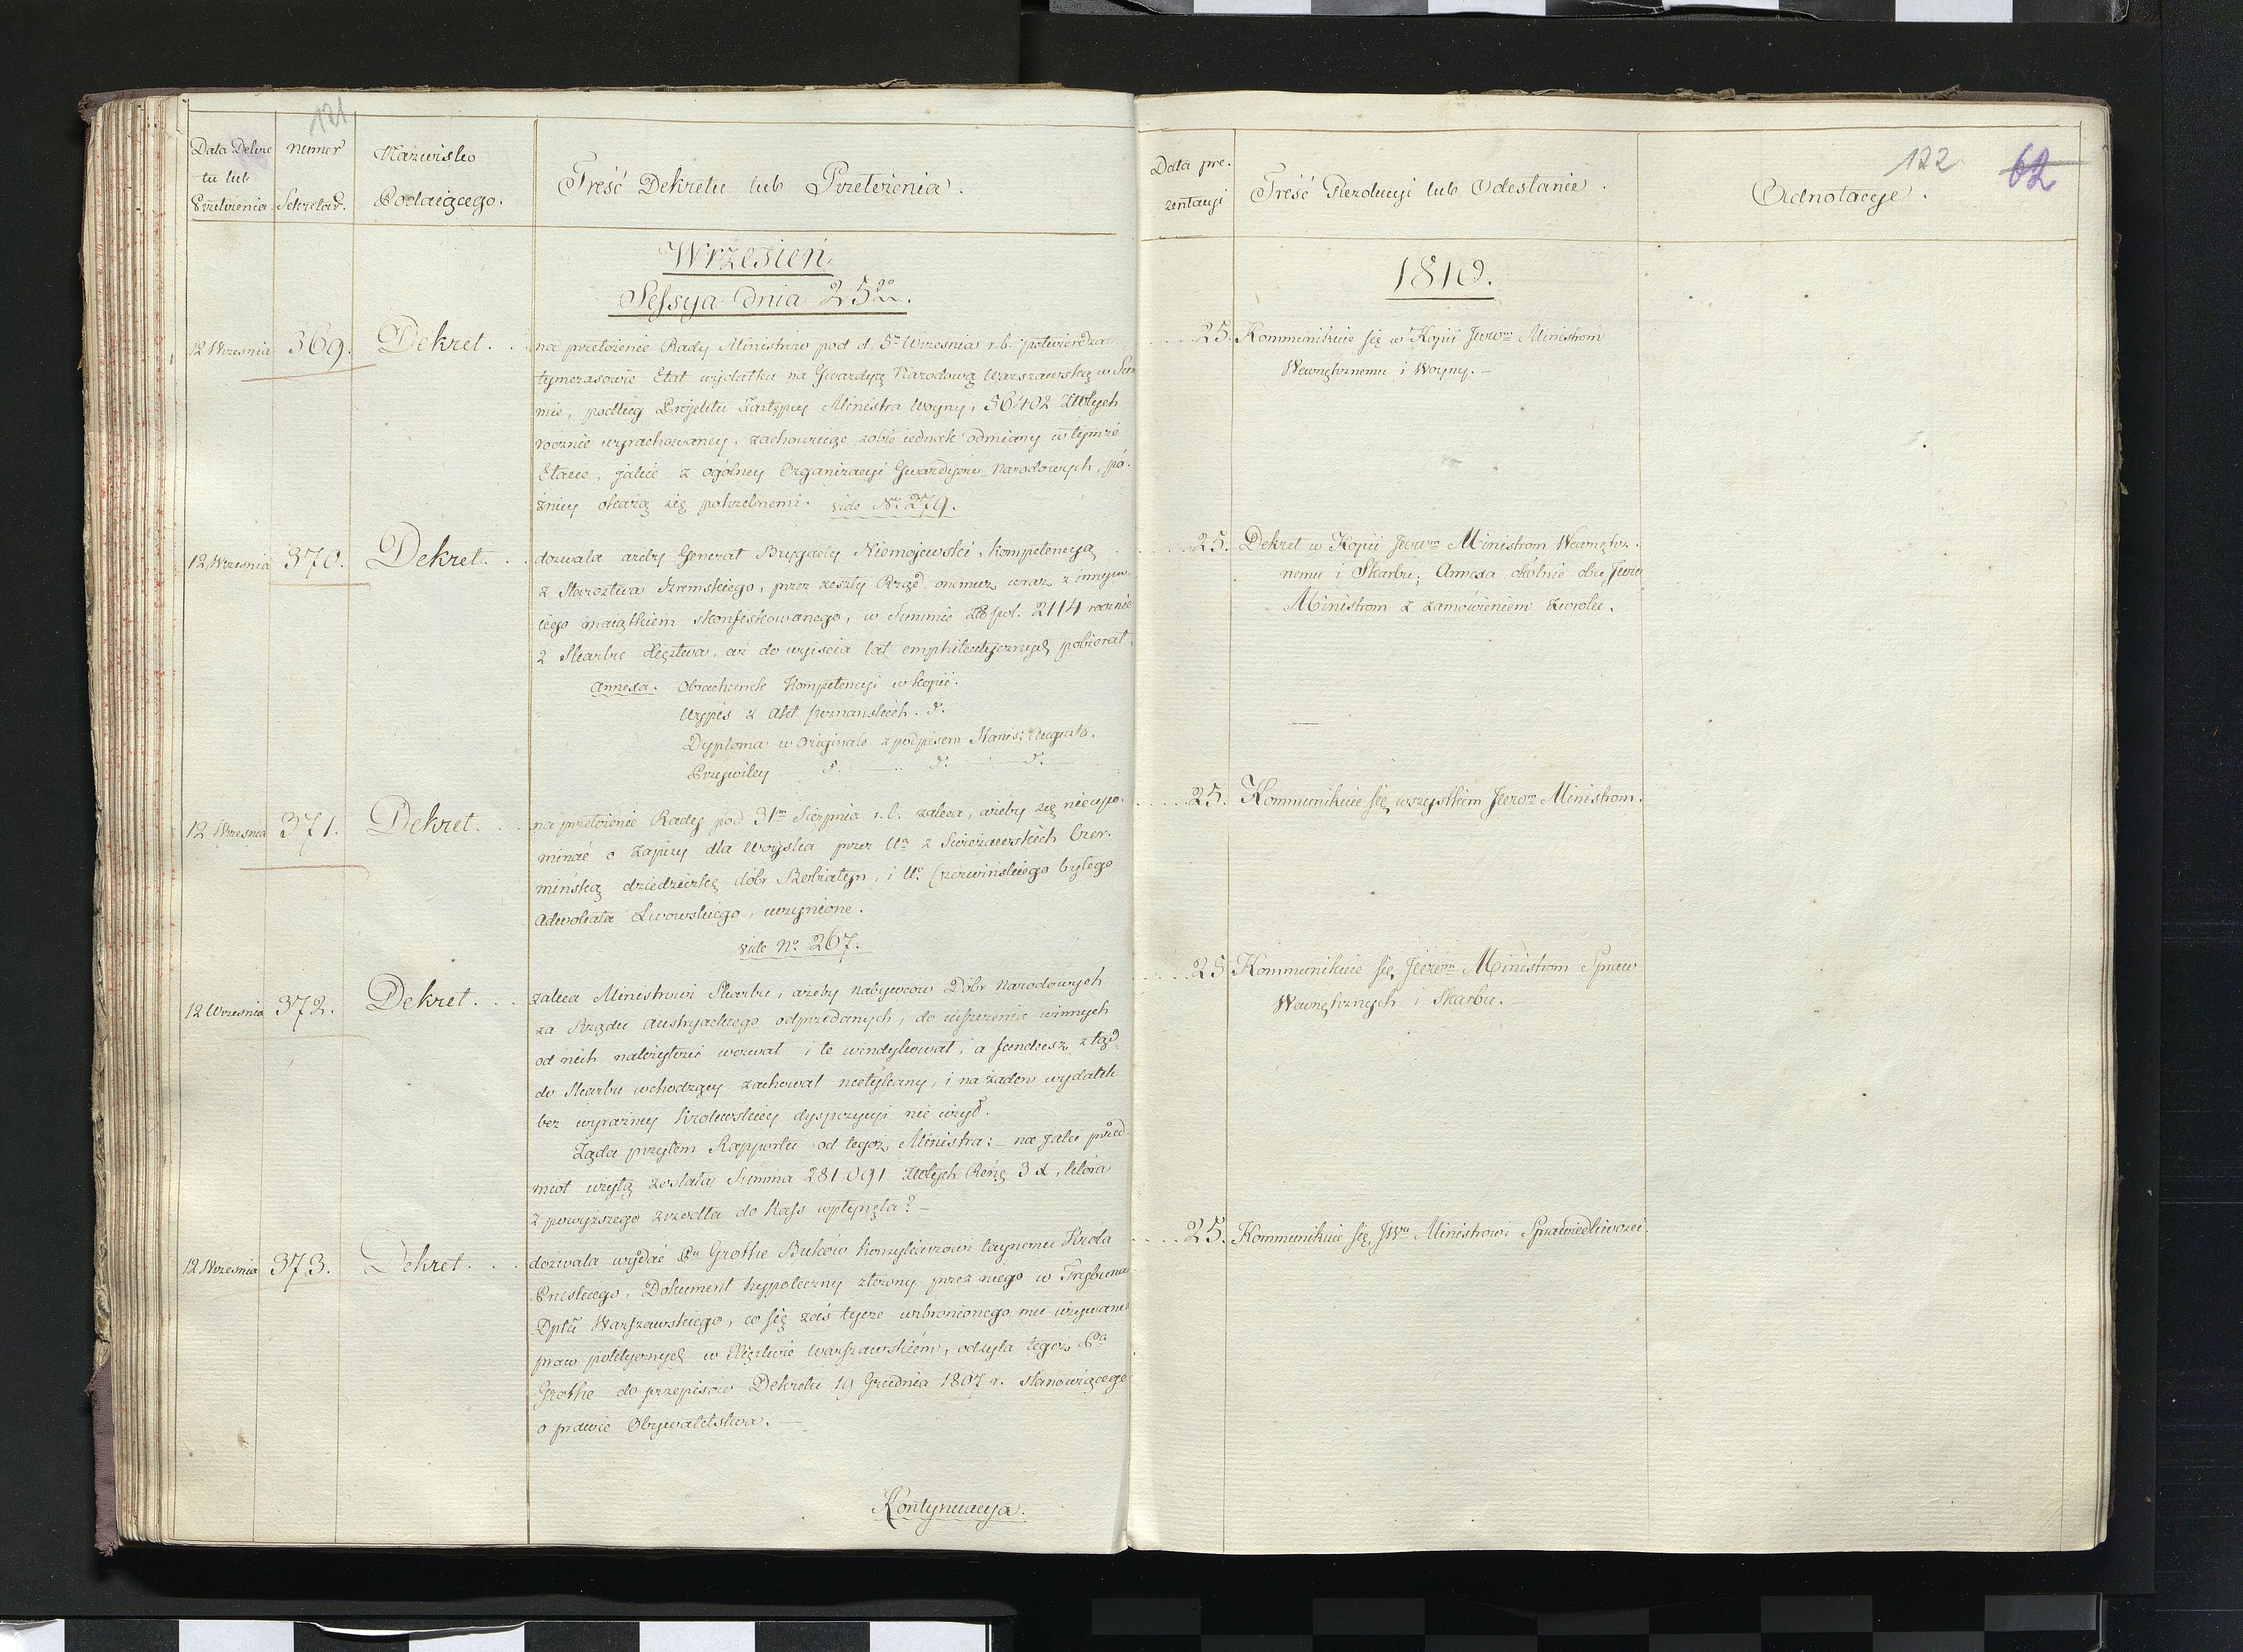 121
Data Dekre
tu lub
Przełożenia
numer
Sekretar.
Nazwisko
Podaiącego.
Treść Dekretu lub Przełożenia.
Data pre.
zentacyi
Treść Rezolucyi lub Odesłanie.
122
62
Adnotacyje.
Wrzesień
Sessya dnia 25go.
1810.
12 Wrzesnia 369. Dekret. . .
na przełożenie Rady Ministrów pod d. 5m Wrzesnia r.b. potwierdza
tymczasowie Etat wydatku na Gwardyą Narodową Warszawską w Sum
mie, podług Projektu Zastępcy Ministra Woyny, 56402 Złotych
rocznie wyrachowaney, zachowuiąc sobie iednak odmiany w tymże
Etacie, jakie z ogólney Organizacyi Gwardyów Narodowych, pó-
źniey okażą się potrzebnemi. vide No. 279.
. . . 25. Kommunikuie się w Kopii JWWm Ministrom
Wewnętrznemu i Woyny. –
12 Wrzesnia 370. Dekret. . .
dozwala ażeby Generał Brygady Niemojewski, kompetencyą
z Starostwa Szremskiego, przez zeszły Rząd onemuż wraz z innym
iego maiątkiem skonfiskowanego, w Summie Złł pol. 2114 rocznie
z Skarbu Xięztwa, aż do wyiścia lat emphiteutycznych pobierał.
Annexa. Obrachunek Kompetencyi w kopii.
Wypis z Akt poznańskich. d.
Dyploma w Originale z podpisem Stanis: Augusta.
Przywiley – d. – d. – d. –
. . . 25. Dekret w Kopii JWWm Ministrom Wewnętrz.
nemu i Skarbu; Annexa okólnie obu JWW
Ministrom z zamówieniem zwrotu.
12 Wrzesnia 371. Dekret. . .
na przełożenie Rady pod 31m Sierpnia r. b. zaleca, ażeby się nieupo-
minać o Zapisy dla Woyska przez Wą z Swieżawskich Czer-
mińską dziedziczkę dóbr Bobiatyn, i Wo Czerwińskiego byłego
Adwokata Lwowskiego, uczynione.
vide No. 267.
. . . 25. Kommunikuie się wszystkim JWWm Ministrom.
12 Wrzesnia 372. Dekret. . .
zaleca Ministrowi Skarbu, ażeby nabywców Dóbr Narodowych
za Rządu Austryackiego odprzedanych, do uiszczenia winnych
od nich należytości wezwał i te windykował, a fundusz ztąd
do Skarbu wchodzący zachował nietykany, i na żaden wydatek
bez wyrazney Krolewskiey dyspozycyi nie użył.
Żąda przytem Rapportu od tegoż Ministra: – na jaki przed-
miot użytą została Summa 281,091 Złotych Reńs 3 x, która
z powyższego zrzodła do Kass wpłynęła? –
. . . 25 Kommunikuie się JWWm Ministrom Spraw
Wewnętrznych i Skarbu. –
12 Wrzesnia 373. Dekret. . .
dozwala wydać Pu Grothe Buków Konsyliarzowi taynemu Króla
Pruskiego, Dokument hypoteczny złożony przez niego w Trybuna
Dptu Warszawskiego, co się zaś tycze wzbronionego mu używania
praw politycznych w Xięztwie Warszawskiem, odsyła tegoż Pa
Grothe do przepisów Dekretu 19 Grudnia 1807 r. stanowiącego
o prawie Obywatelstwa. –
. . . 25. Kommunikuie się JWu Ministrowi Sprawiedliwości.
Kontynuacya.